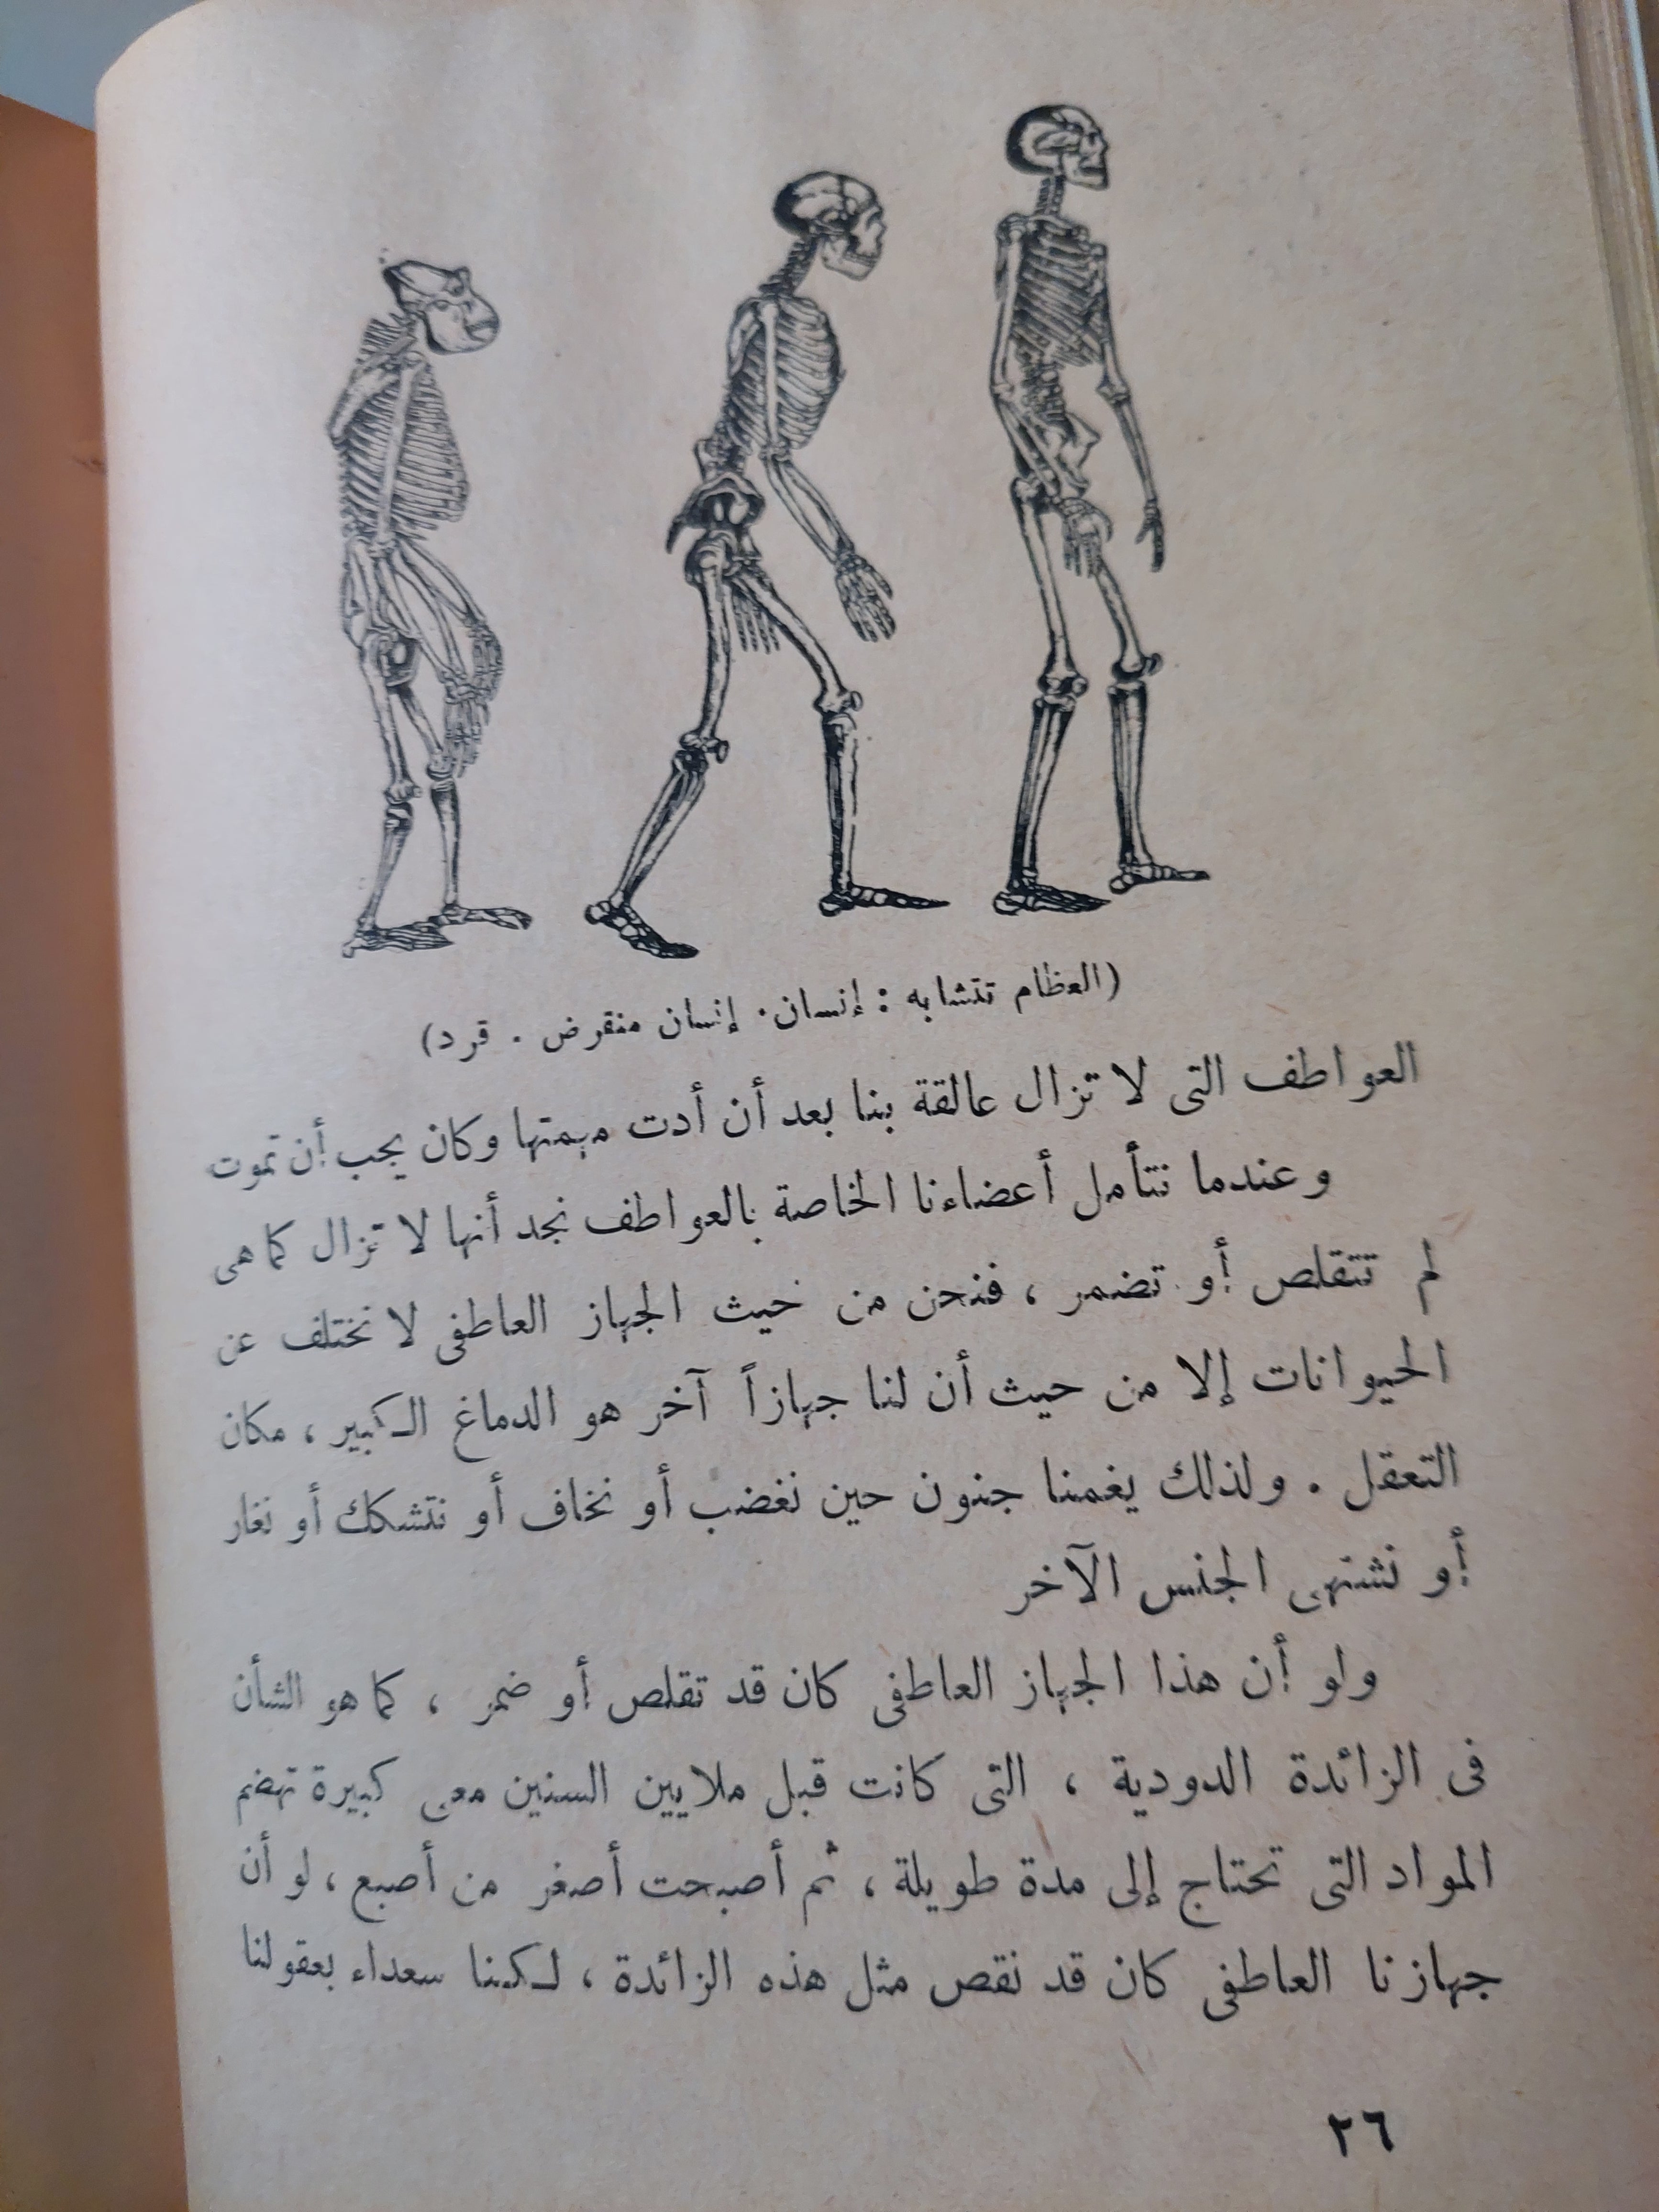 (العظام تتشابه : إنسان . إنسان منقرض . قرد)
العواطف التى لا تزال عالقة بنا بعد أن أدت مهمتها وكان يجب أن تموت
وعندما نتأمل أعضاءنا الخاصة بالعواطف نجد أنها لا تزال كما هى
لم تتقلص أو تضمر ، فنحن من حيث الجهاز العاطفى لا نختلف عن
الحيوانات إلا من حيث أن لنا جهازاً آخر هو الدماغ الكبير ، مكان
التعقل . ولذلك يغمنا جنون حين نغضب أو نخاف أو نتشكك أو نغار
أو نشتهى الجنس الآخر
ولو أن هذا الجهاز العاطفى كان قد تقلص أو ضمر ، كما هو الشأن
فى الزائدة الدودية ، التى كانت قبل ملايين السنين معى كبيرة تهضم
المواد التى تحتاج إلى مدة طويلة ، ثم أصبحت أصغر من أصبع ، لو أن
جهازنا العاطفى كان قد نقص مثل هذه الزائدة ، لكنا سعداء بعقولنا
٢٦